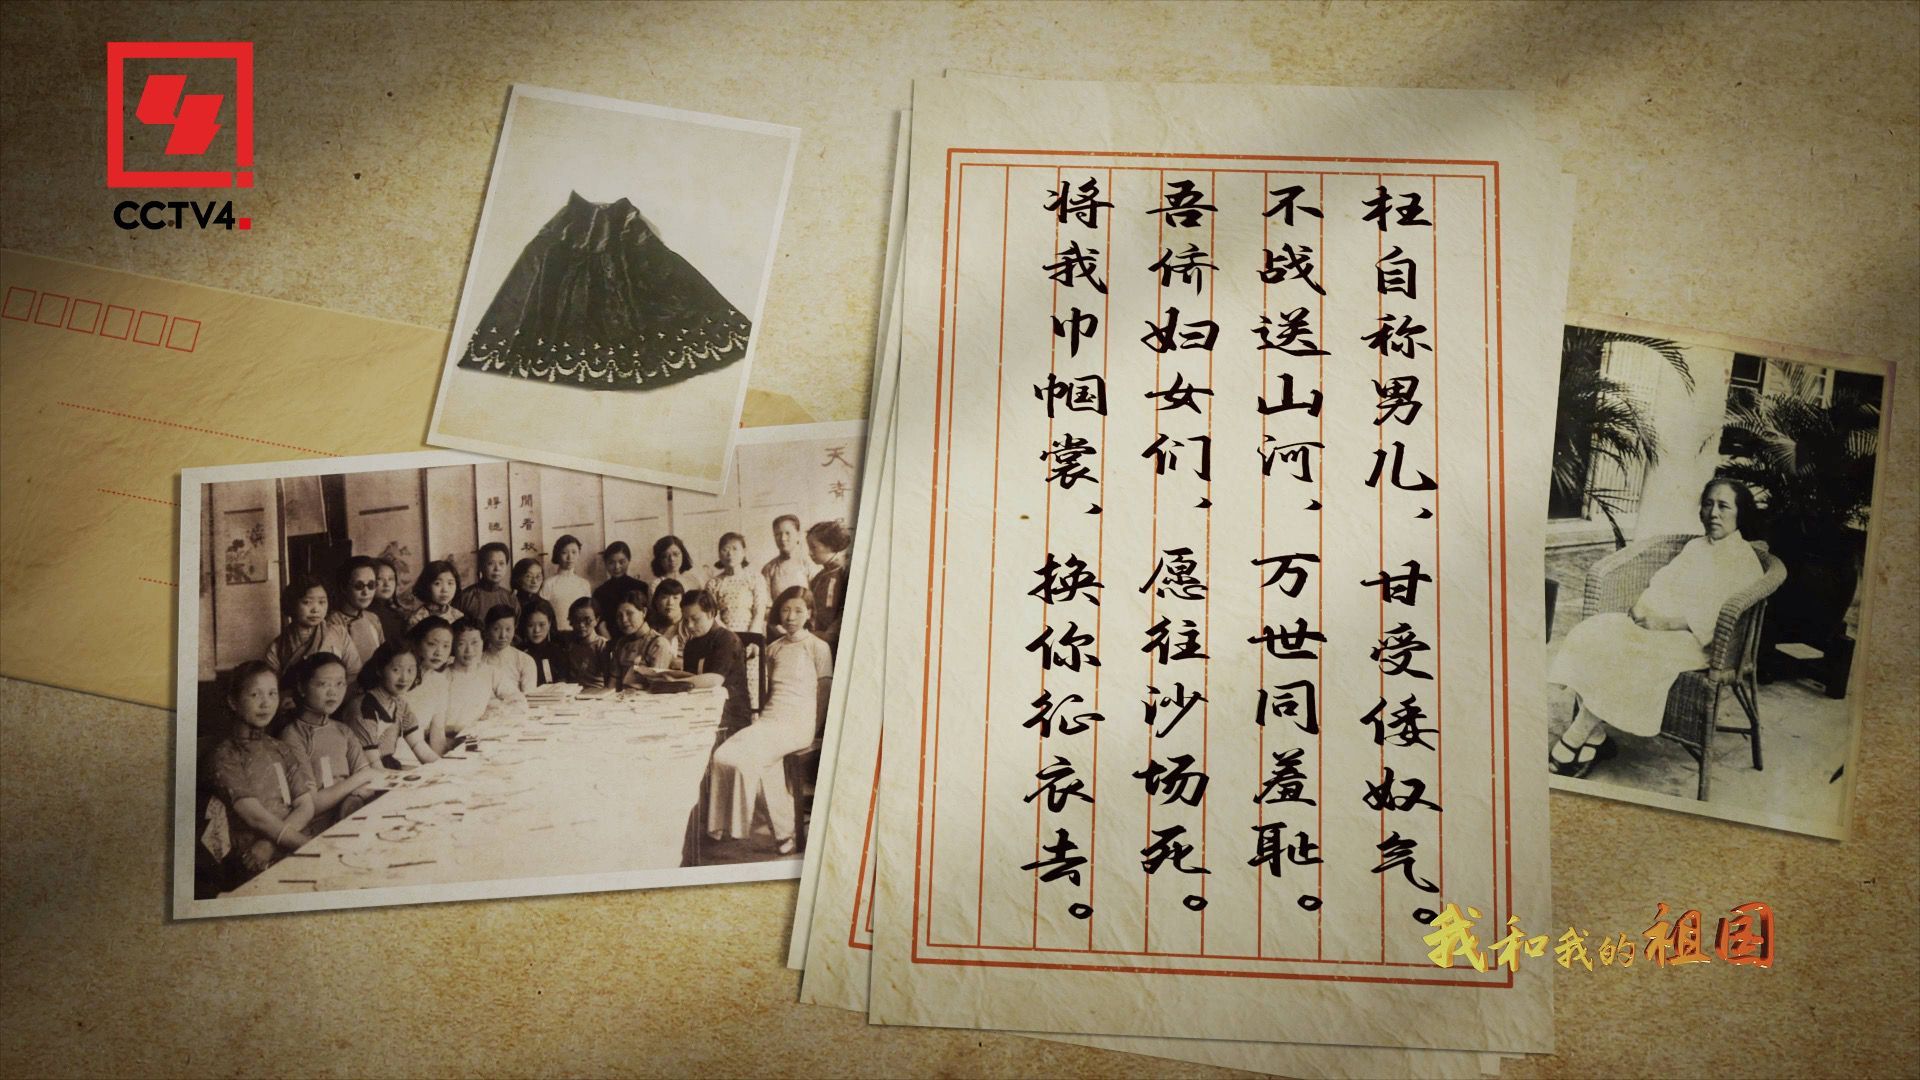 CCTV4
枉自称男儿、甘受倭奴气。
不战送山河、万世同羞耻。
吾侪妇女们、愿往沙场死。
将我巾帼裳、换你征衣去。
我和我的祖国